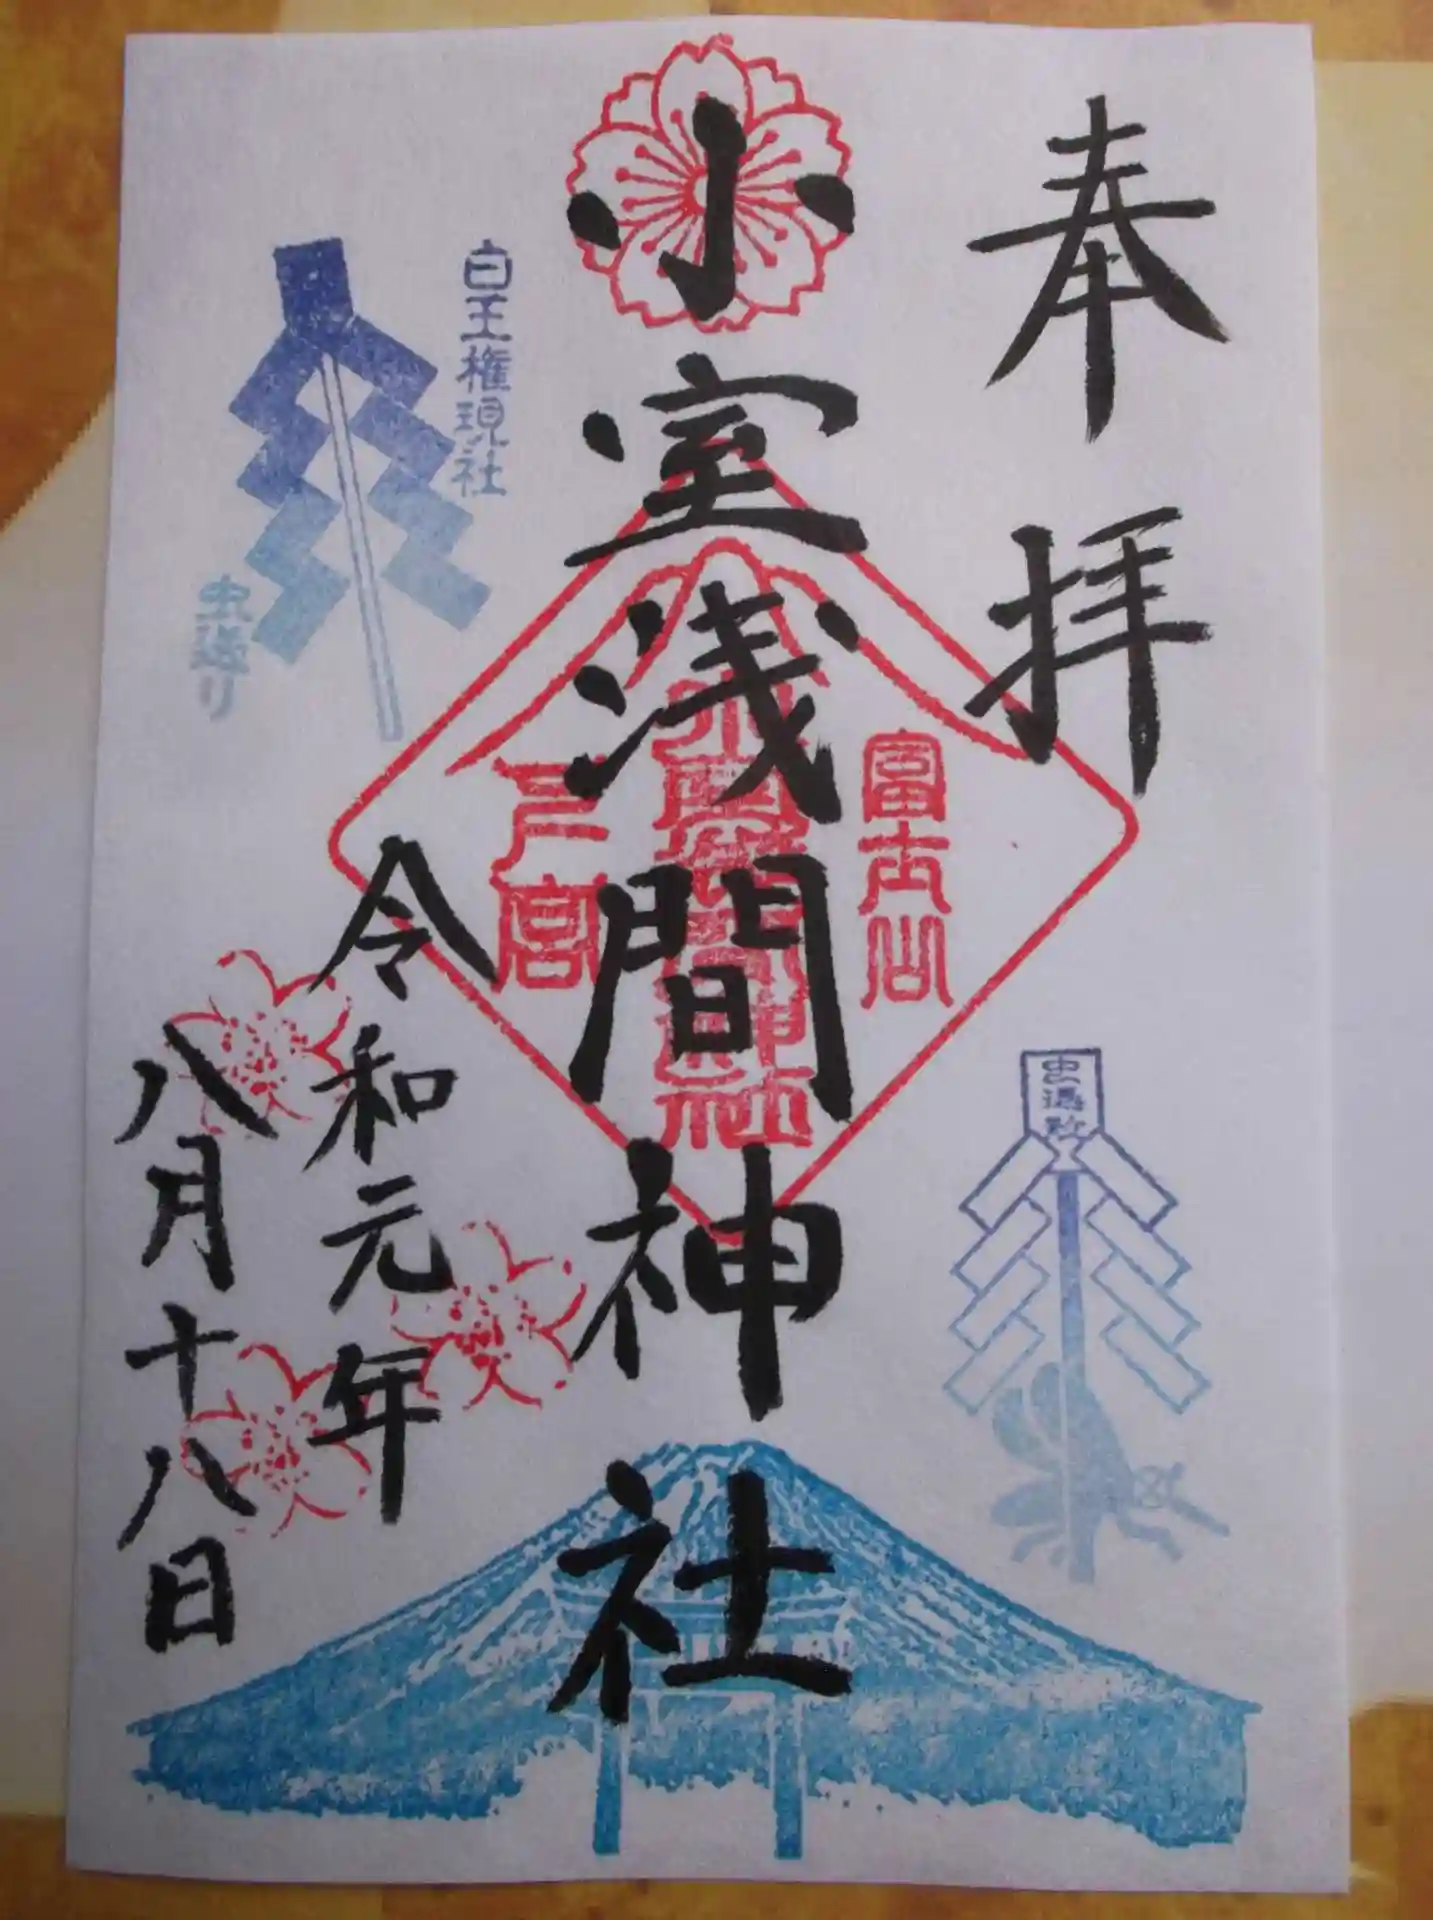 奉拝
富士山
小室浅間神社
小室浅間神社
戸宮
白王権現社
虫送り
令和元年
八月十八日